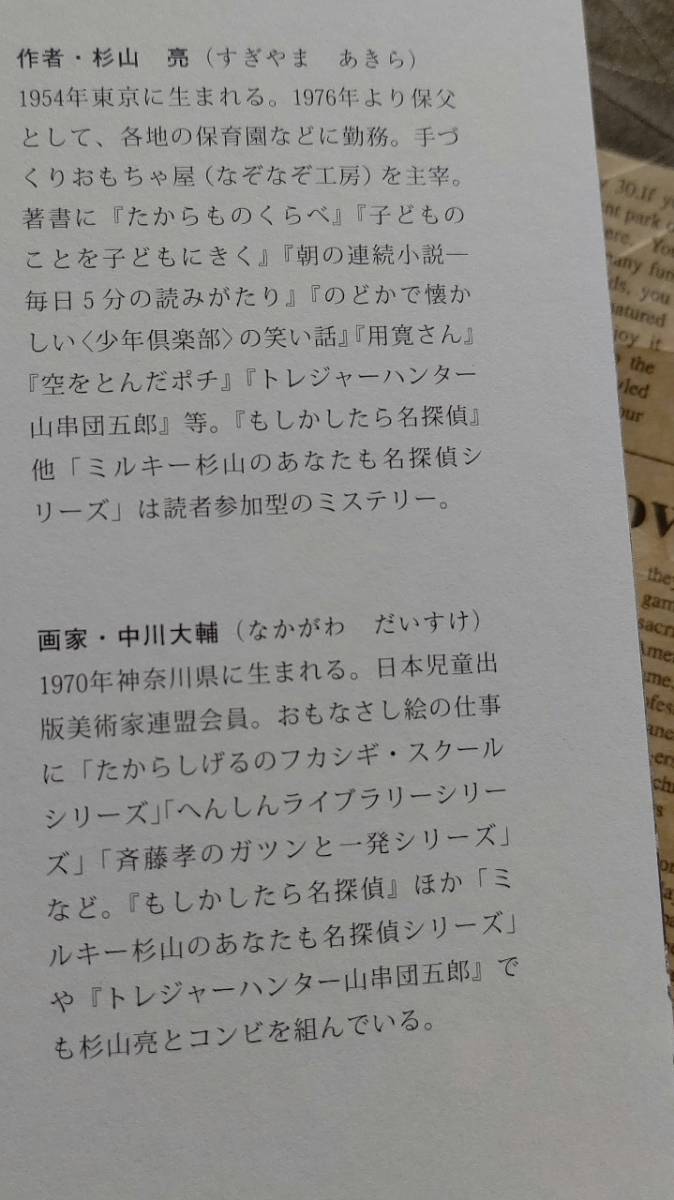 作者・杉山 亮（すぎやま あきら）
1954年東京に生まれる。1976年より保父
として、各地の保育園などに勤務。手づ
くりおもちゃ屋（なぞなぞ工房）を主宰。
著書に『たからものくらべ』『子どもの
ことを子どもにきく』『朝の連続小説―
毎日5分の読みがたり』『のどかで懐か
しい〈少年倶楽部〉の笑い話』『用寛さん』
『空をとんだポチ』『トレジャーハンター
山串団五郎』等。『もしかしたら名探偵』
他「ミルキー杉山のあなたも名探偵シ
リーズ」は読者参加型のミステリー。
画家・中川大輔（なかがわ だいすけ）
1970年神奈川県に生まれる。日本児童出
版美術家連盟会員。おもなさし絵の仕事
に「たからしげるのフカシギ・スクール
シリーズ」「へんしんライブラリーシリー
ズ」「斉藤孝のガツンと一発シリーズ」
など。『もしかしたら名探偵』ほか「ミ
ルキー杉山のあなたも名探偵シリーズ」
や『トレジャーハンター山串団五郎』で
も杉山亮とコンビを組んでいる。
30.If
park
any
you
atured
it
the
they